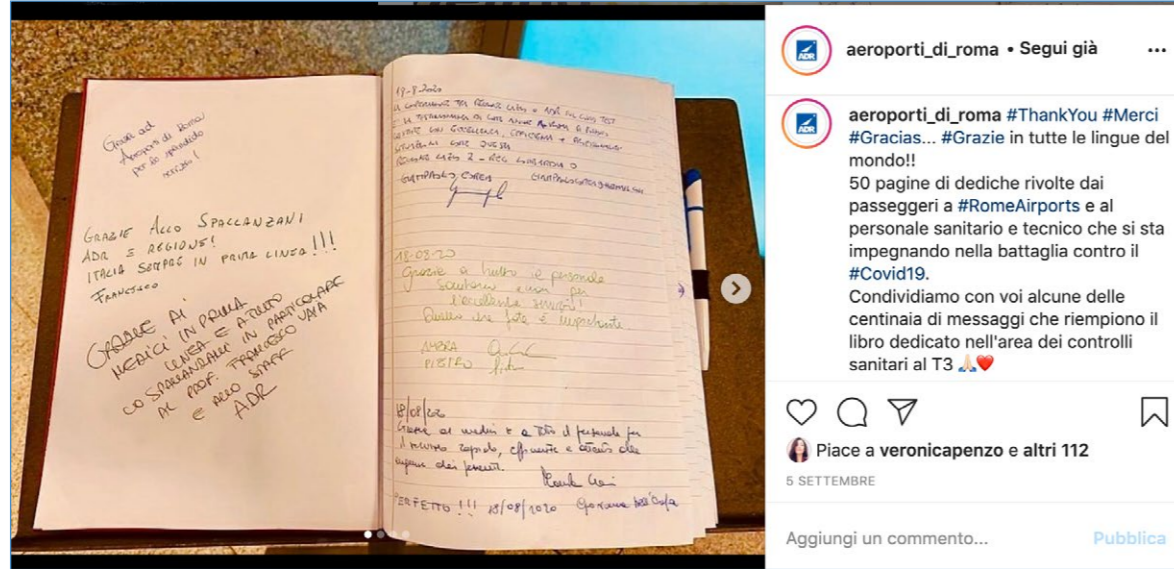 Grazie ad
Aeroporti di Roma
per lo splendido
servizio!
GRAZIE ALLO SPALLANZANI
ADR E REGIONE!
ITALIA SEMPRE IN PRIMA LINEA!!!
FRANCESCO
GRAZIE AI
MEDICI IN PRIMA
LINEA E A TUTTO
LO SPALLANZANI IN PARTICOLARE
AL PROF. FRANCESCO VAIA
E ALLO STAFF
ADR
19-8-2020
REGIONE LAZIO
18-08-20
Grazie a tutto il personale
sanitario e non per
l'eccellente servizio!
Quello che fate è importante
AMBRA
PIETRO
18/08/20
Grazie ai medici e a tutto il personale per
il servizio rapido, efficiente e attento alle
dei pazienti.
PERFETTO!!! 18/08/2020 Giovanna
ADR
aeroporti_di_roma • Segui già
...
ADR
aeroporti_di_roma #ThankYou #Merci
#Gracias... #Grazie in tutte le lingue del
mondo!!
50 pagine di dediche rivolte dai
passeggeri a #RomeAirports e al
personale sanitario e tecnico che si sta
impegnando nella battaglia contro il
#Covid19.
Condividiamo con voi alcune delle
centinaia di messaggi che riempiono il
libro dedicato nell'area dei controlli
sanitari al T3 🙏🏻❤️
Piace a veronicapenzo e altri 112
5 SETTEMBRE
Aggiungi un commento...
Pubblica